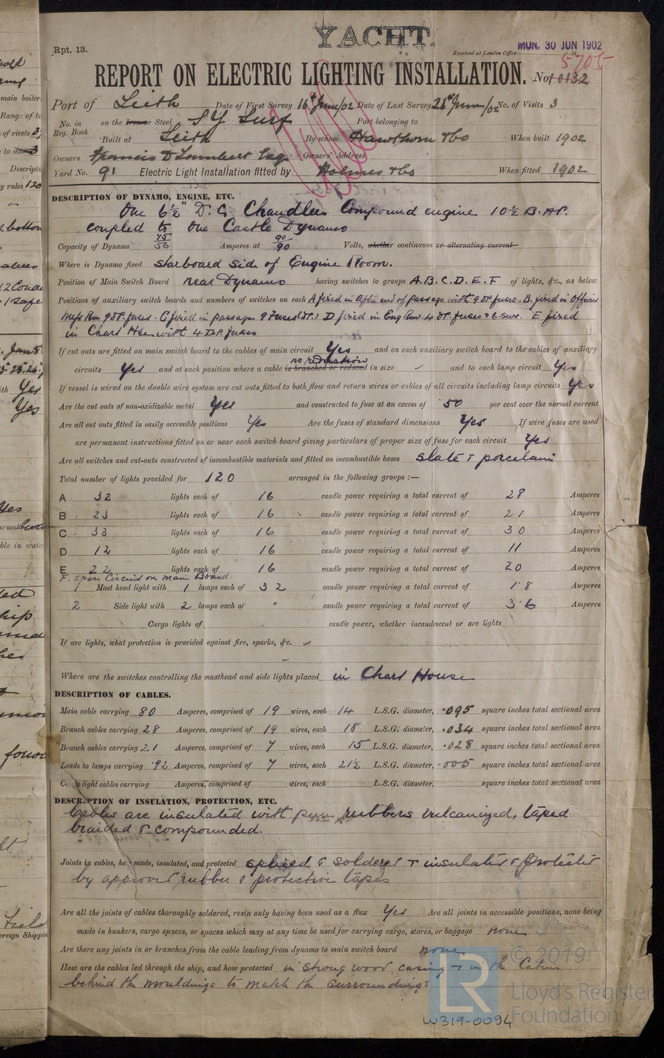 YACHT.
Rpt. 13.
Received at London Office MON. 30 JUN 1902
5705
REPORT ON ELECTRIC LIGHTING INSTALLATION. No. 0132
Port of Leith Date of First Survey 16th June/02 Date of Last Survey 26th June/02 No. of Visits 3
No. in Reg. Book on the Iron or Steel S Y Surf Port belonging to
Built at Leith By whom Hawthorn & Co When built 1902
Owners Francis D Lambert Esq Owners' Address
Yard No. 91 Electric Light Installation fitted by Holmes & Co When fitted 1902
DESCRIPTION OF DYNAMO, ENGINE, ETC.
One 6½" D.C. Chandler Compound engine 10½ B.H.P.
coupled to One Castle Dynamo
Capacity of Dynamo Amperes at 90 Volts, whether continuous or alternating current
Where is Dynamo fixed starboard side of Engine Room.
Position of Main Switch Board near Dynamo having switches to groups A.B.C.D.E.F of lights, &c., as below
Position of auxiliary switch boards and numbers of switches on each A fixed in after end of passage with 9 DP. fuses. B. fixed in
9 DP. fuses. C fixed in passage 9 fuses DP. D fixed in Eng Rm. 4 DP. fuses & 6 sws. E fixed
in Chart House with 4 D.P. fuses
If cut outs are fitted on main switch board to the cables of main circuit Yes and on each auxiliary switch board to the cables of auxiliary
circuits Yes and at each position where a cable is branched or reduced in size no reduction and to each lamp circuit Yes
If vessel is wired on the double wire system are cut outs fitted to both flow and return wires or cables of all circuits including lamp circuits Yes
Are the cut outs of non-oxidizable metal Yes and constructed to fuse at an excess of 50 per cent over the normal current
Are all cut outs fitted in easily accessible positions Yes Are the fuses of standard dimensions Yes If wire fuses are used
are permanent instructions fitted on or near each switch board giving particulars of proper size of fuse for each circuit Yes
Are all switches and cut-outs constructed of incombustible materials and fitted on incombustible bases Slate & porcelain
Total number of lights provided for 120 arranged in the following groups :—
A 32 lights each of 16 candle power requiring a total current of 28 Amperes
B 23 lights each of 16 candle power requiring a total current of 21 Amperes
C 33 lights each of 16 candle power requiring a total current of 30 Amperes
D 12 lights each of 16 candle power requiring a total current of 11 Amperes
E 22 lights each of 16 candle power requiring a total current of 20 Amperes
F. spare Circuit on main Board
Mast head light with 1 lamps each of 32 candle power requiring a total current of 1.8 Amperes
2 Side light with 2 lamps each of " candle power requiring a total current of 3.6 Amperes
Cargo lights of candle power, whether incandescent or arc lights
If arc lights, what protection is provided against fire, sparks, &c.
Where are the switches controlling the masthead and side lights placed in Chart House
DESCRIPTION OF CABLES.
Main cable carrying 80 Amperes, comprised of 19 wires, each 14 L.S.G. diameter, .095 square inches total sectional area
Branch cables carrying 28 Amperes, comprised of 19 wires, each 18 L.S.G. diameter, .034 square inches total sectional area
Branch cables carrying 21 Amperes, comprised of 7 wires, each 15 L.S.G. diameter, .028 square inches total sectional area
Leads to lamps carrying .92 Amperes, comprised of 7 wires, each 21½ L.S.G. diameter, .005 square inches total sectional area
Cargo light cables carrying Amperes, comprised of wires, each L.S.G. diameter, square inches total sectional area
DESCRIPTION OF INSULATION, PROTECTION, ETC.
Cables are insulated with pure rubbers vulcanized, taped
braided & compounded
Joints in cables, how made, insulated, and protected spliced & soldered & insulated & protected
by approved rubber & protective tapes
Are all the joints of cables thoroughly soldered, resin only having been used as a flux Yes Are all joints in accessible positions, none being
made in bunkers, cargo spaces, or spaces which may at any time be used for carrying cargo, stores, or baggage none
Are there any joints in or branches from the cable leading from dynamo to main switch board none
How are the cables led through the ship, and how protected in strong wood casing & in the Cabins
behind the mouldings to match the surroundings
© 2019
LR Lloyd's Register
Foundation
W319-0094